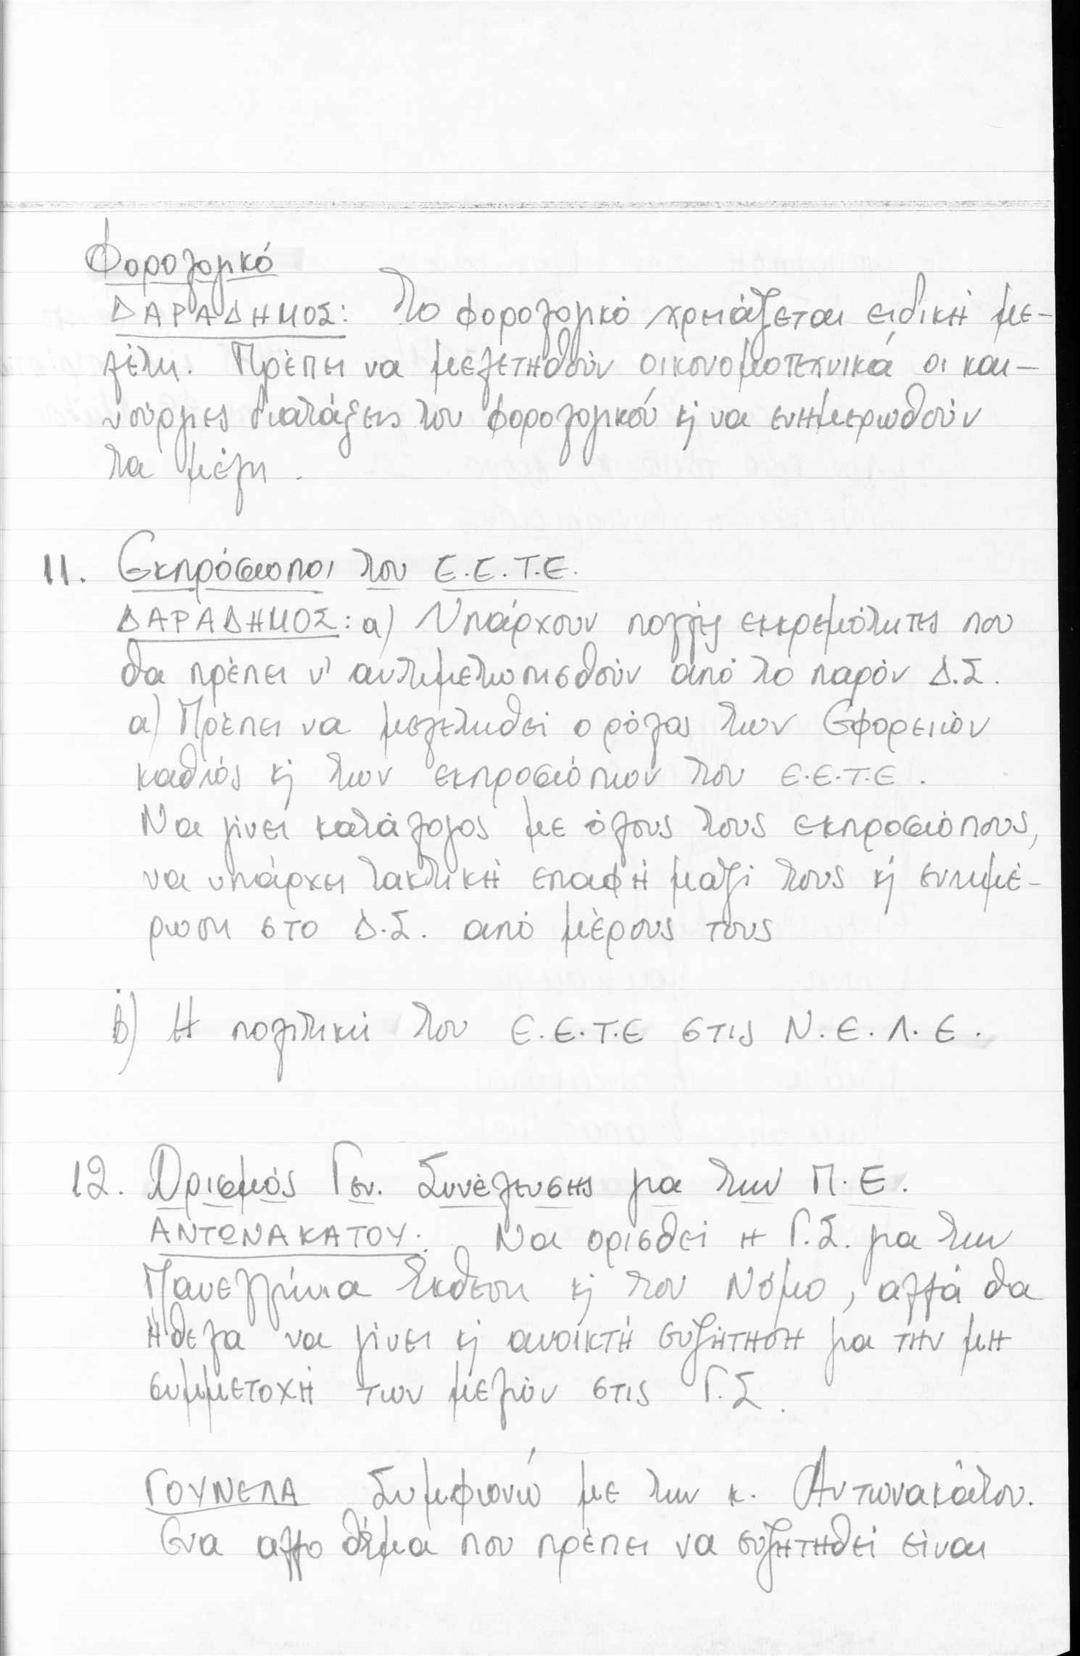 Φορολογικό
ΔΑΡΑΔΗΜΟΣ: Το φορολογικό χρειάζεται ειδική με-
λέτη. Πρέπει να μελετηθούν οικονομοτεχνικά οι και-
νούργιες διατάξεις του φορολογικού κ' να ενημερωθούν
τα μέλη.
11. Εκπρόσωποι του Ε.Ε.Τ.Ε.
ΔΑΡΑΔΗΜΟΣ: α) Υπάρχουν πολλές εκκρεμότητες που
θα πρέπει ν' αντιμετωπισθούν από το παρόν Δ.Σ.
α) Πρέπει να μελετηθεί ο ρόλος των Εφορειών
καθώς κ' των εκπροσώπων του Ε.Ε.Τ.Ε.
Να γίνει κατάλογος με όλους τους εκπροσώπους,
να υπάρχει τακτική επαφή μαζί τους κ' ενημέ-
ρωση στο Δ.Σ. από μέρους τους
β) Η πολιτική του Ε.Ε.Τ.Ε στις Ν.Ε.Λ.Ε.
12. Ορισμός Γεν. Συνέλευσης για την Π.Ε.
ΑΝΤΩΝΑΚΑΤΟΥ: Να ορισθεί η Γ.Σ. για την
Πανελλήνια Έκθεση κ' τον Νόμο, αλλά θα
ήθελα να γίνει κ' ανοικτή συζήτηση για την μη
συμμετοχή των μελών στις Γ.Σ.
ΓΟΥΝΕΛΑ Συμφωνώ με την κ. Αντωνακάτου.
Ένα αλλο θέμα που πρέπει να συζητηθεί είναι